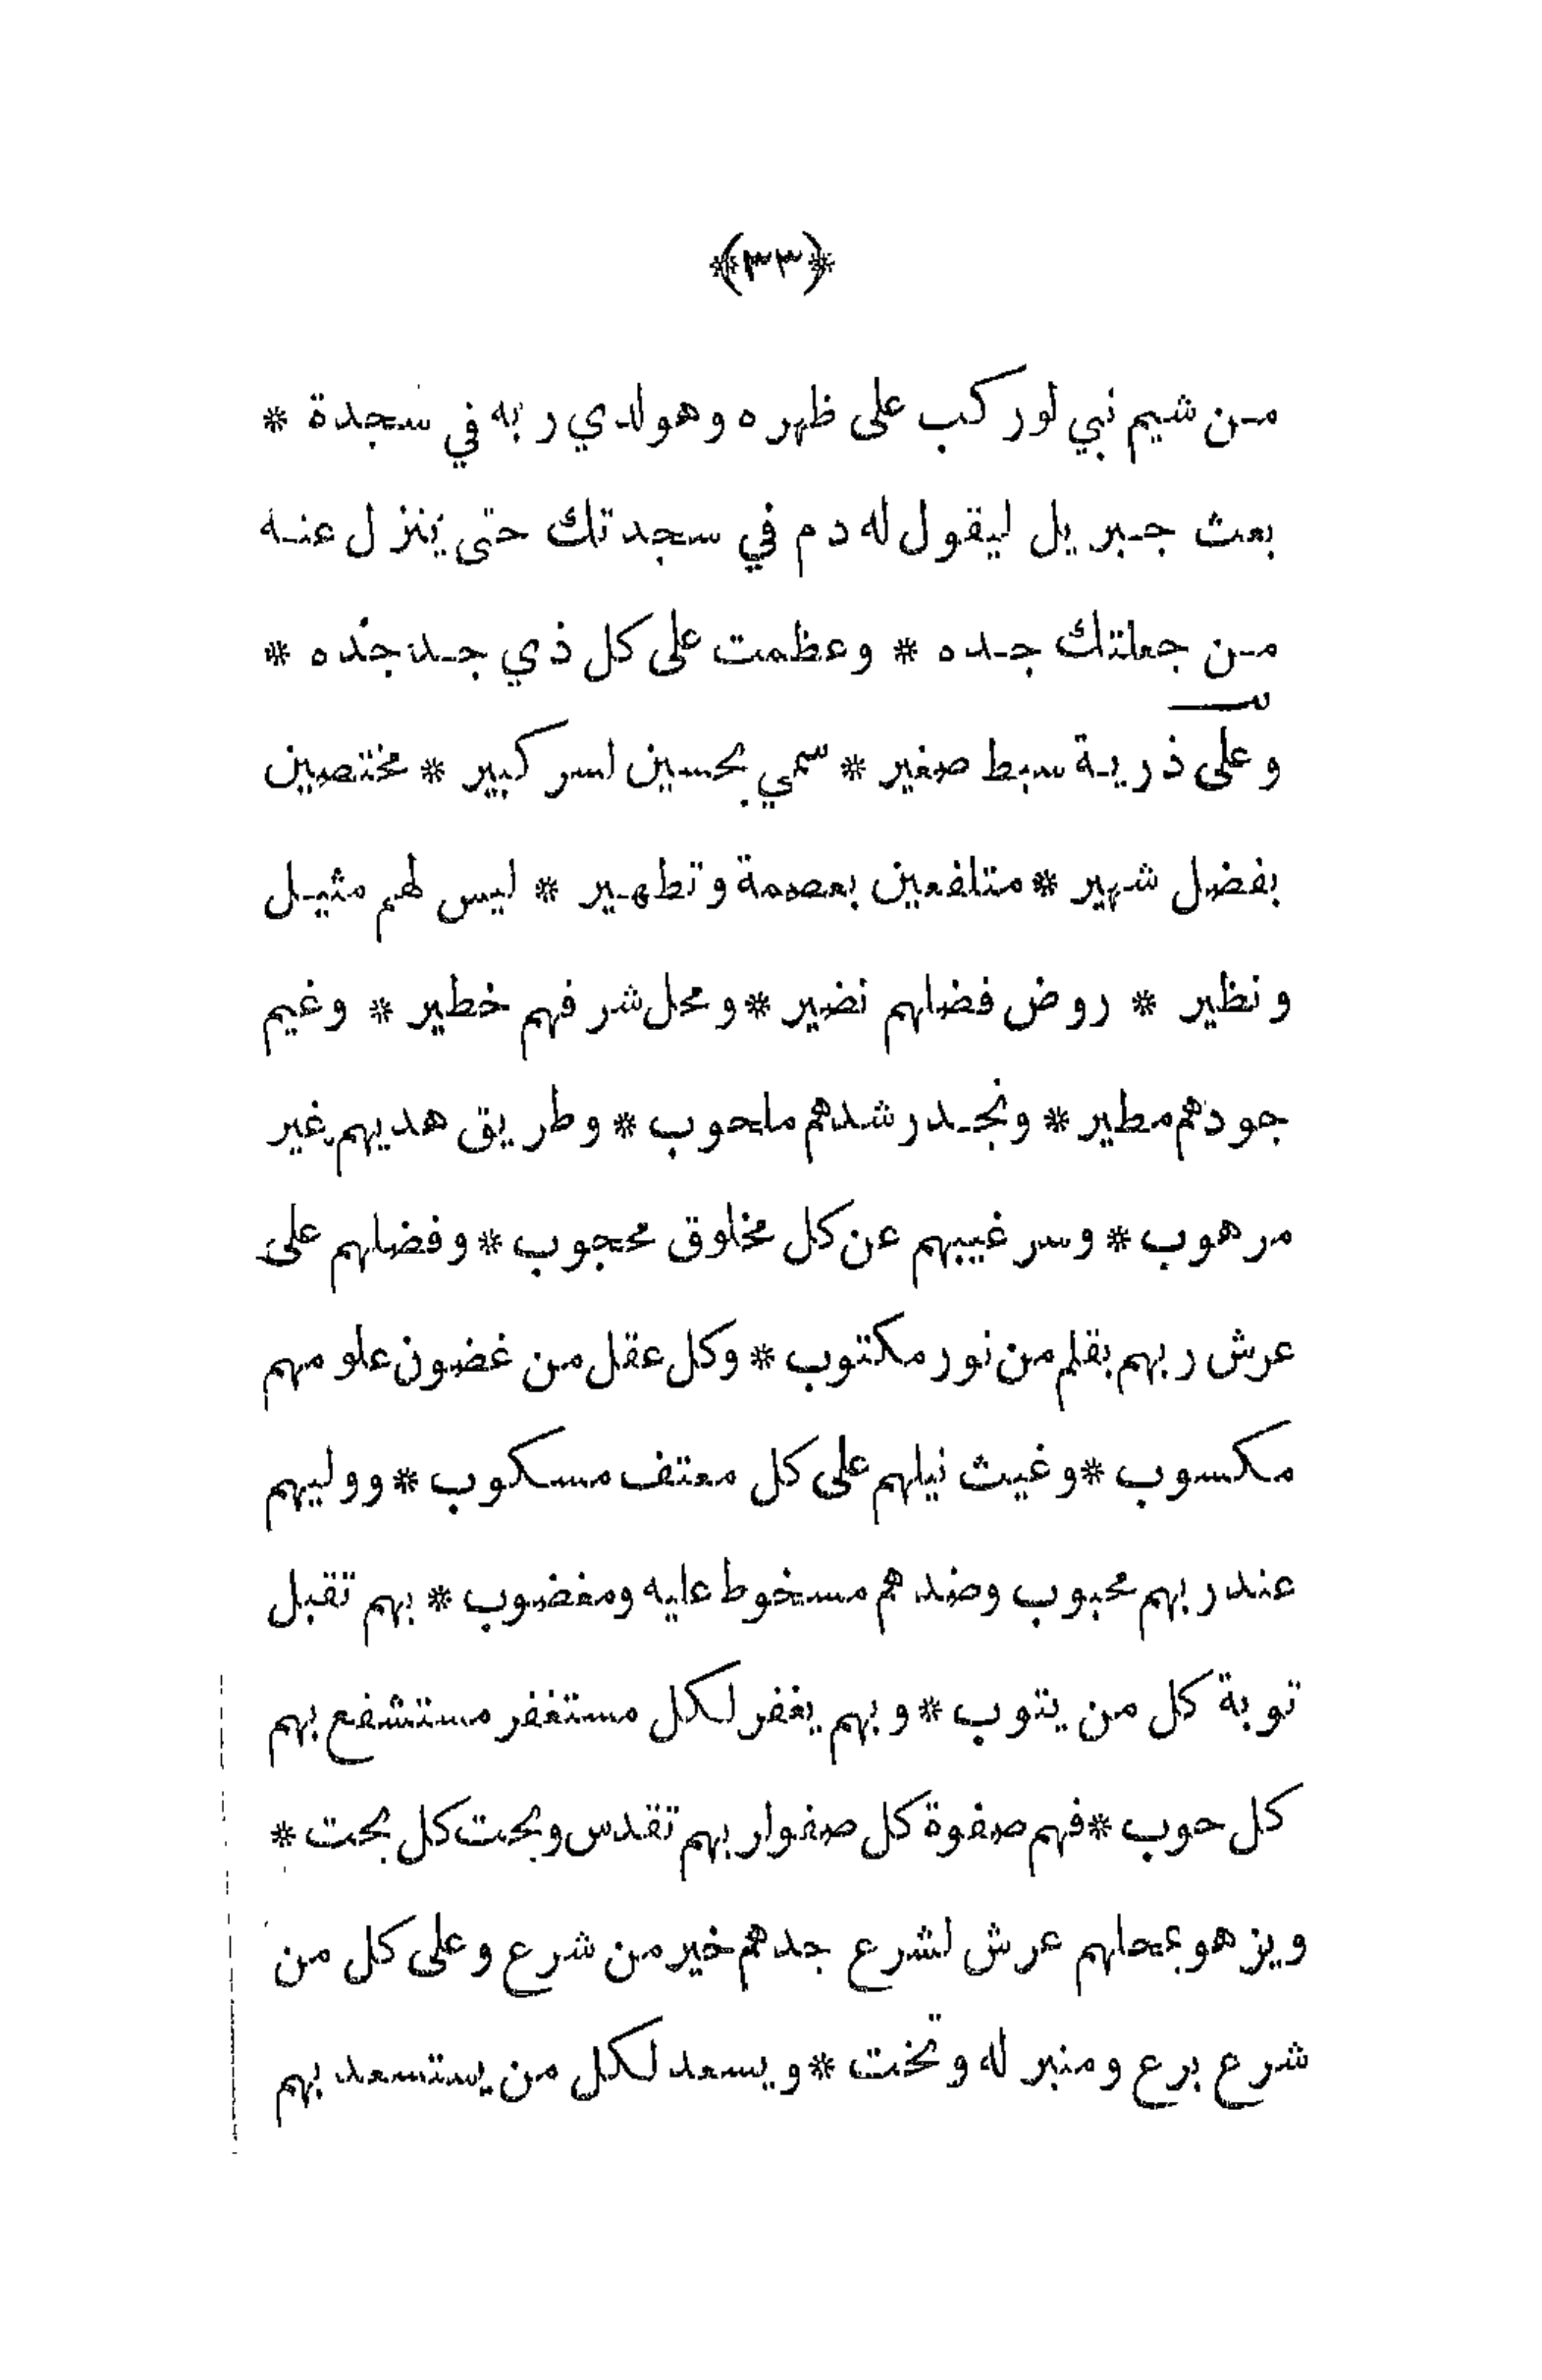 ﴿٣٣﴾
من شيم نبي لو ركب على ظهره وهو لدي ربه في سجدة *
بعث جبريل ليقول له دم في سجدتك حتى ينزل عنه
من جعلتك جده * وعظمت على كل ذي جد جده *
وعلى ذرية سبط صغير * سمي بحسين لسر كبير * مختصين
بفضل شهير * متلفعين بعصمة وتطهير * ليس لهم مثيل
ونظير * روض فضلهم نضير * ومحل شرفهم خطير * وغيم
جودهم مطير * ونجد رشدهم ملحوب * وطريق هديهم غير
مرهوب * وسر غيبهم عن كل مخلوق محجوب * وفضلهم على
عرش ربهم بقلم من نور مكتوب * وكل عقل من غضون علومهم
مكسوب * وغيث نيلهم على كل معتف مسكوب * ووليهم
عند ربهم محبوب وضدهم مسخوط عليه ومغضوب * بهم تقبل
توبة كل من يتوب * وبهم يغفر لكل مستغفر مستشفع بهم
كل حوب * فهم صفوة كل صفو اربهم تقدس وبحت كل بحت *
ويزهو بمحلهم عرش لشرع جدهم خير من شرع وعلى كل من
شرع برع ومنبر له وتخت * ويسعد لكل من يستسعد بهم